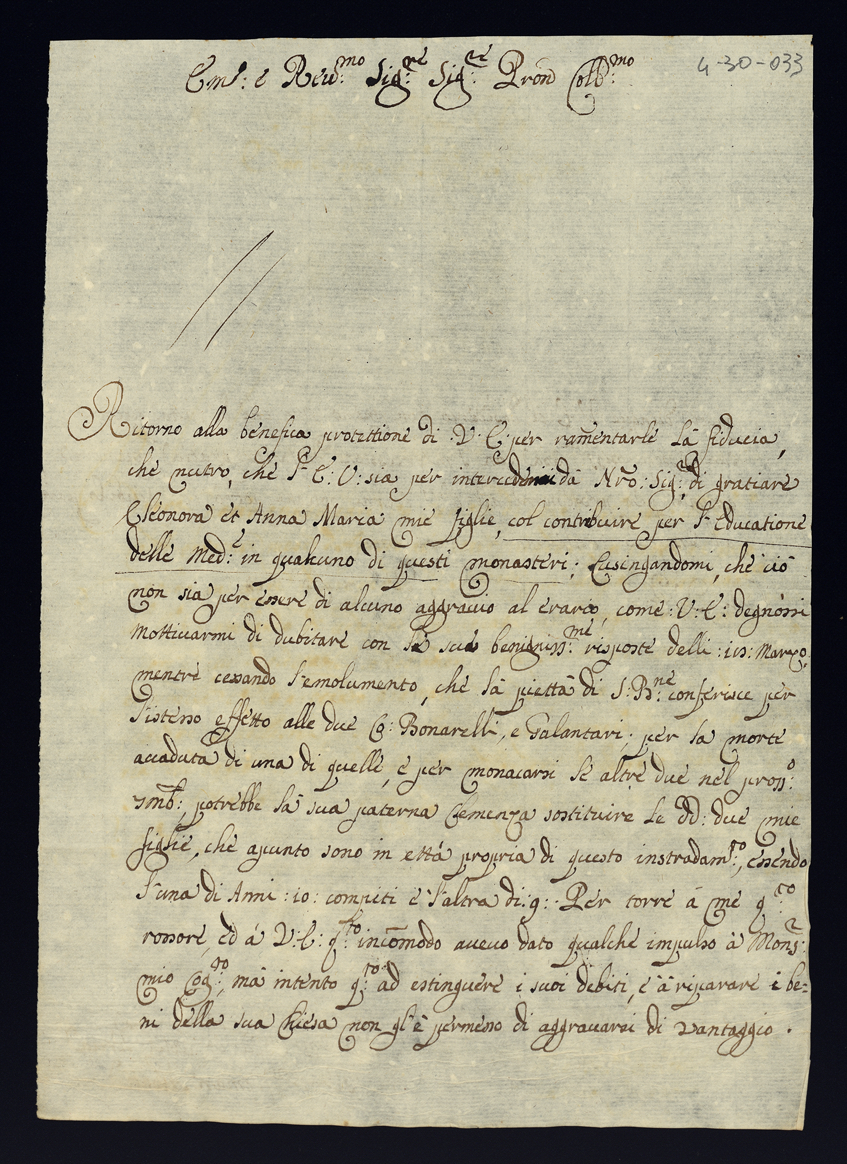 4-30-033
Em̃: e Reud:mo Sig:re Sig:re Pron̄ Coll:mo
Ritorno alla benefica protettione di V: E: per ram̃entarle la fiducia,
che nutro, che l'E: V: sia per intercedermi dà Nr̃o: Sig:re, di gratiare
Eleonora et Anna Maria mie figlie, col contribuire per l'Educatione
delle Med:e in qualcuno di questi monasteri; Lusingandomi, che ciò
non sia per essere di alcuno aggrauio al erario, come: V: E: degnossi
mottiuarmi di dubitare con la sua benigniss:me risposte delli: Marzo,
mentre cessando l'emolumento, che la piettà di S: B:ne conferisce per
l'istesso effetto alle due Co: Bonarelli, e Galantari, per la morte
accaduta di una di quelle, e per monacarsi le altre due nel pross:o
7mb:, potrebbe la sua paterna Clemenza sostituire le dd: due mie
figlie, che apunto sono inettà propria di questo instradam:to, essendo
l'una di Anni: 10: compiti e l'altra di: 9: Per torre à me q:to
rossore, ed à V: E: q:to incom̃odo aueuo dato qualche impulso à Mons:
mio Cog:to, mà intento q:to ad estinguere i suoi debiti, e à riparare i be=
ni della sua Chiesa non gl'è permesso di aggrauarsi di vantaggio.